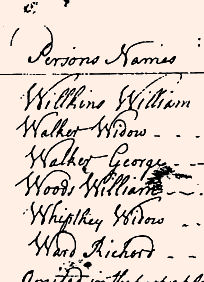 Persons Names
Willkins William
Walker Widow
Walker George
Woods William
Whipthey Widow
Ward Richord